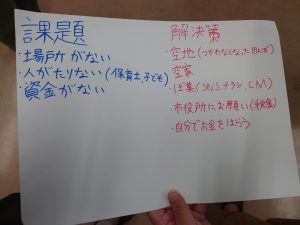 課題
・土場所がない
・人がたりない(保育士,子ども)
・資金がない
解決策
・空地(つかわなくなった田んぼ)
空家
・ぼ集(SNS、チラシ、CM)
・市役所にお願い(税金)
・自分でお金をはらう